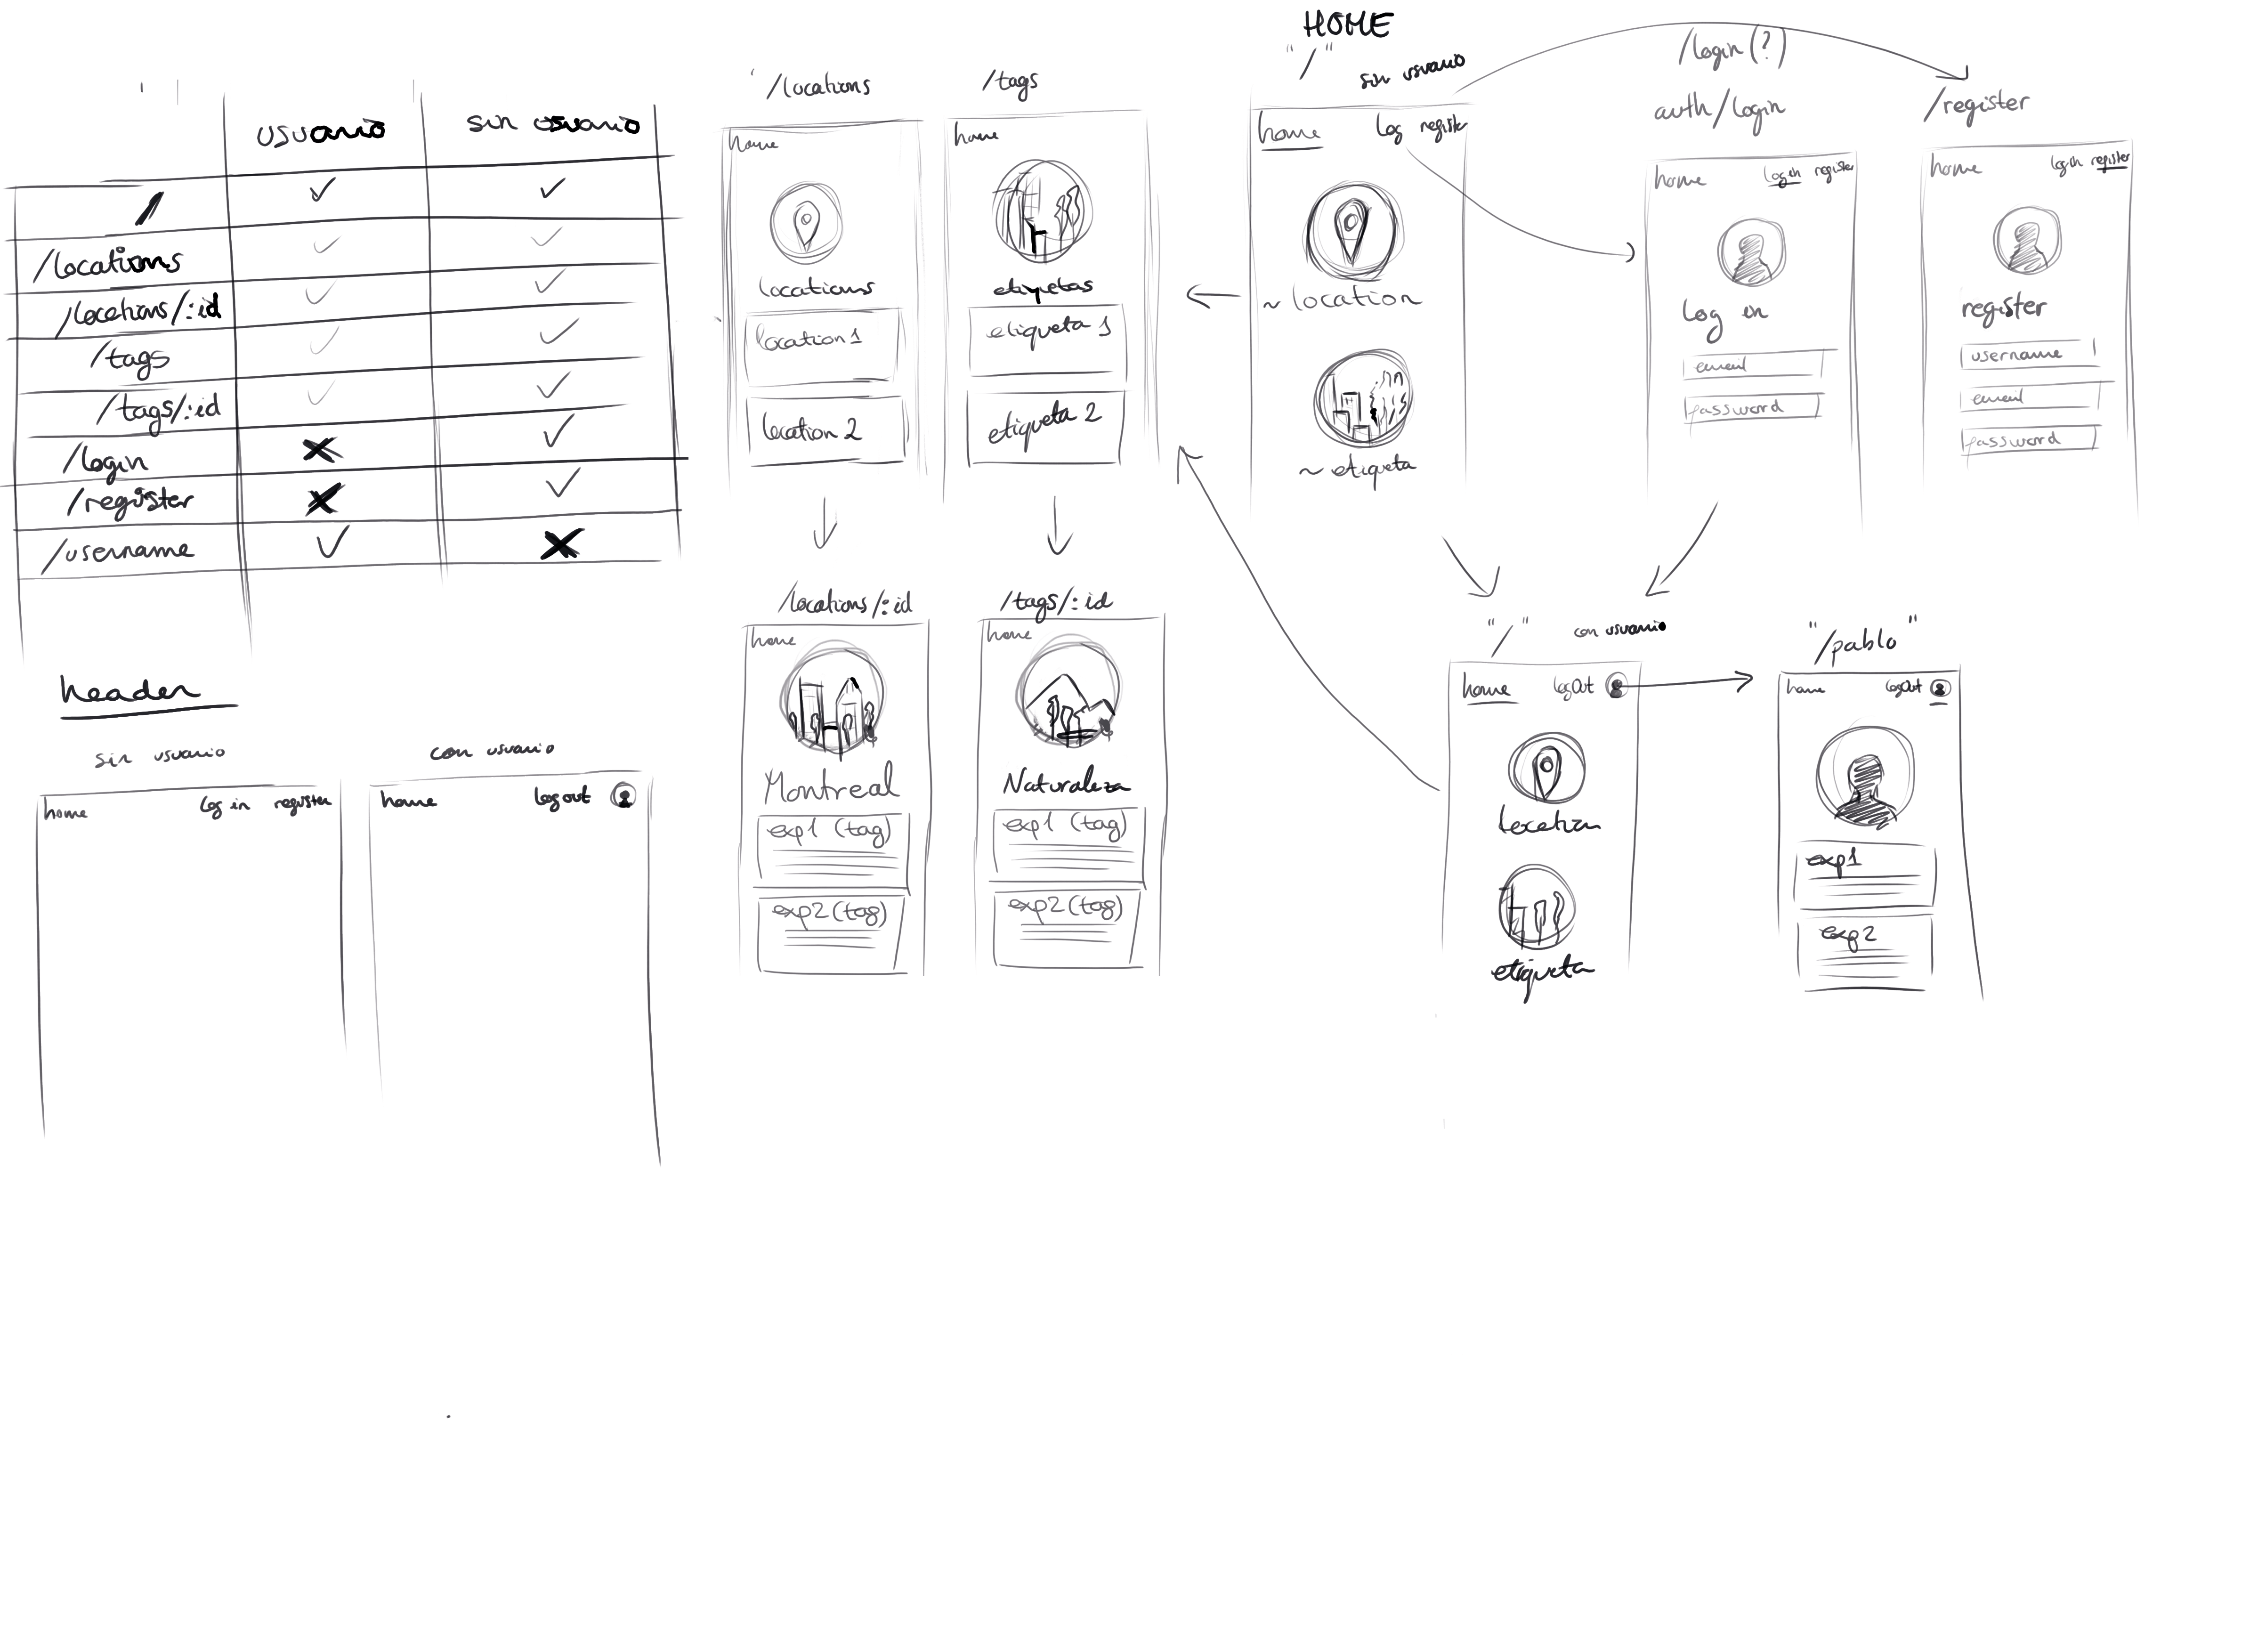 usuario sin usuario
/
/locations
/locations/:id
/tags
/tags/:id
/login
/register
/username
header
sin usuario
home log in register
con usuario
home logout
/locations
home
locations
location 1
location 2
/tags
home
etiquetas
etiqueta 1
etiqueta 2
/locations/:id
home
Montreal
exp1 (tag)
exp2 (tag)
/tags/:id
home
Naturaleza
exp1 (tag)
exp2 (tag)
HOME
"/"
sin usuario
home log register
~ location
~ etiqueta
/login (?)
auth/login
home login register
log in
email
password
/register
home login register
register
username
email
password
"/" con usuario
home logOut
location
etiqueta
"/pablo"
home logOut
exp1
exp2